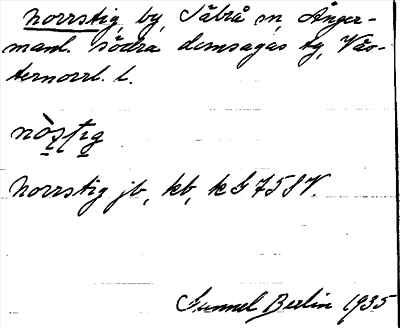 Norrstig, by, Säbrå sn, Ånger-
manl. södra domsagas tg, Väs-
ternorrl. l.
nòs̩t̩ig
Norrstig jb, kb, k G 75 SV.
Gunnel Berlin 1935